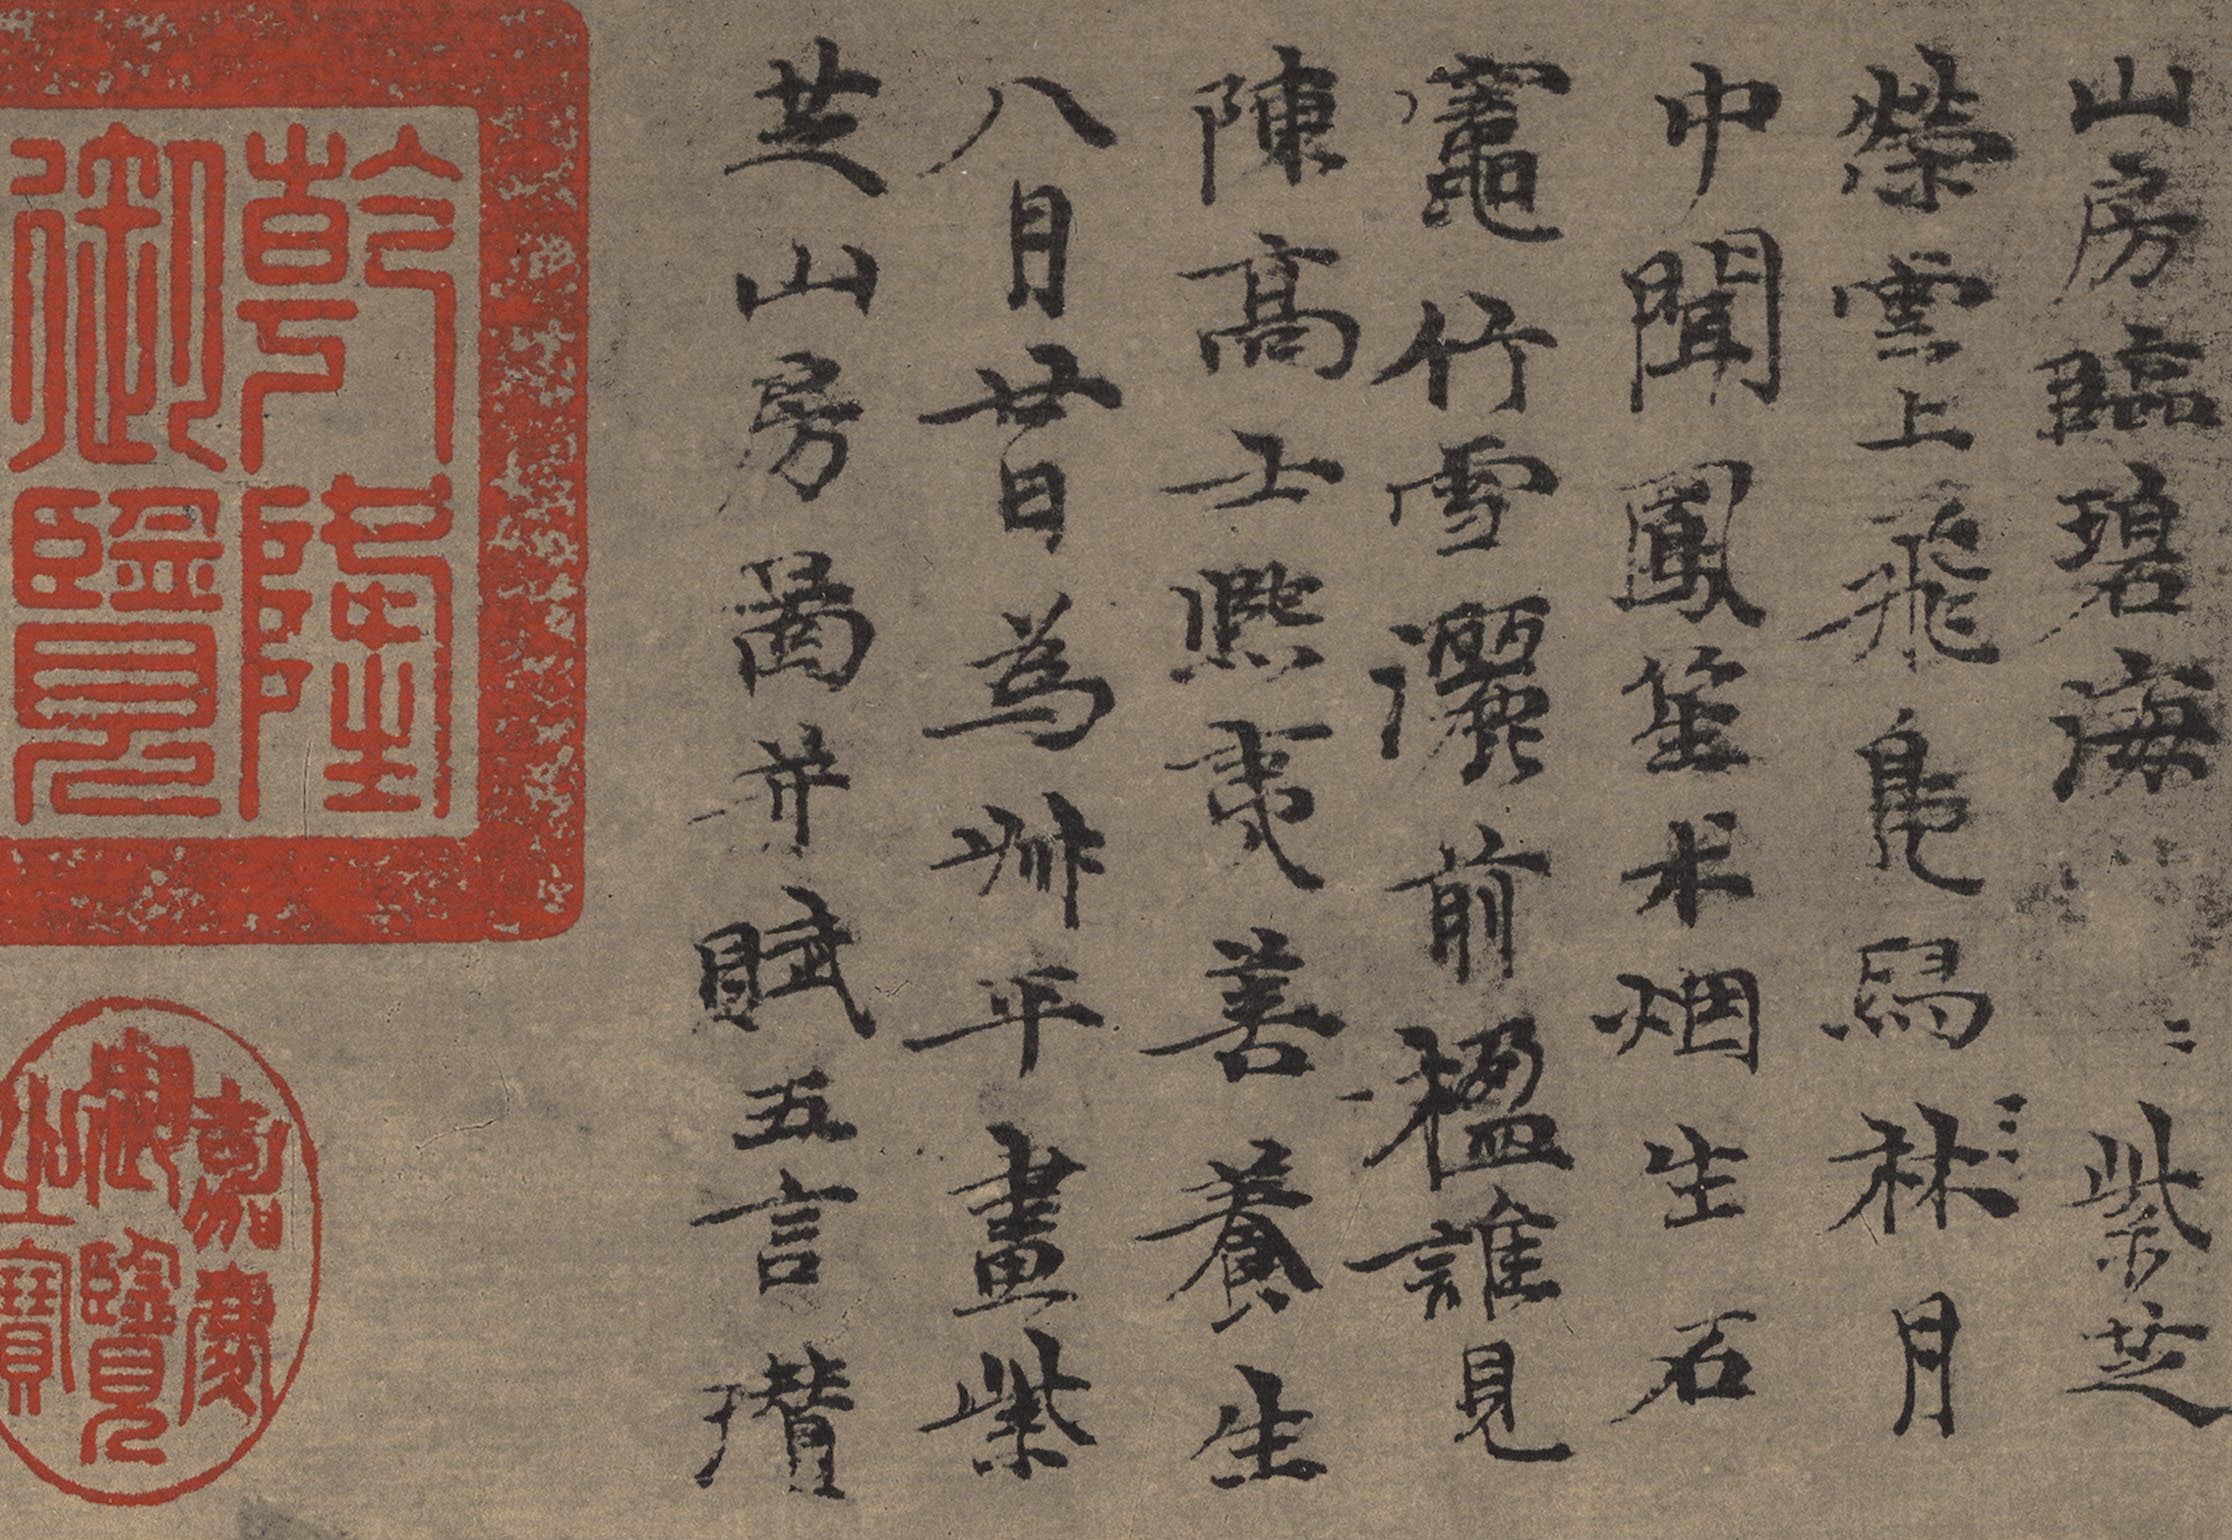 山房臨碧海紫芝
榮雲上飛鳧舄林月
中聞鳳笙术烟生石
竈竹雪灑前楹誰見
陳高士熙夷善養生
八月廿日為叔平畫紫
芝山房圖并賦五言瓚
乾隆
御覽
嘉慶
御覽
之寶